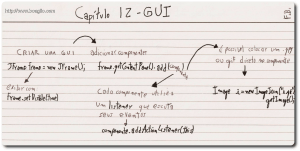 http://www.ivanqueiroz...
Capítulo 12 - GUI
F.B.
CRIAR UMA GUI
adicionar componente
é possível colocar um
JFrame frame = new JFrame();
frame.getContentPane().add(
ou até direto no componente
Exibir com
frame.setVisible(true)
Cada componente utiliza
um listener que escuta
seus eventos
componente.addActionListener(this)
Image i = new ImageIcon(
getImage();